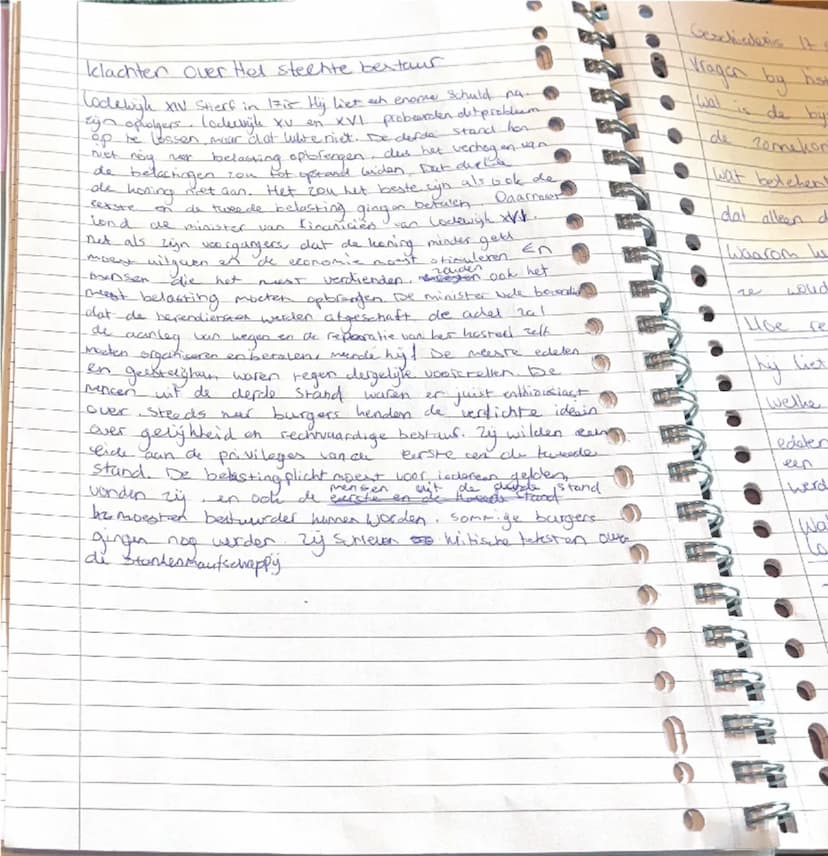 klachten over Het slechte bestuur
Lodewijk XIV stierf in 1715 Hij liet een enorme schuld na
zijn opvolgers. Lodewijk XV en XVI probeerden dit probleem
op te lossen, maar dat lukte niet. De derde stand kon
niet nog meer belasting opbrengen, dus het verhogen van
de belastingen zou tot opstand leiden. Dat durfde
de koning niet aan. Het zou het beste zijn als ook de
eerste en de tweede belasting gingen betalen. Daarnaast
vond de minister van Financiën van Lodewijk XVI.
net als zijn voorgangers dat de koning minder geld
moest uitgeven en de economie moest stimuleren. En
mensen die het meest verdienden, zouden ook het
meest belasting moeten opbrengen. De minister
dat de herendiensten werden afgeschaft de adel zal
de aanleg van wegen en de reparatie van het kasteel zelf
moeten organiseren en betalen, meende hij! De meeste edelen
en geestelijken waren tegen dergelijke voorstellen. De
mensen uit de derde stand waren er juist enthousiast
over. Steeds meer burgers kenden de verlichte ideeën
over gelijkheid en rechtvaardige bestuur. Zij wilden een
einde aan de privileges van de eerste en de tweede
stand. De belastingplicht moest voor iedereen gelden,
vonden zij, en ook de mensen uit de derde stand
moesten bestuurder kunnen worden. Sommige burgers
gingen nog verder. Zij schreven kritische teksten over
de standenmaatschappij
Geschiedenis
Vragen bij
wat is de
de zonnekon
wat betekent
dat alleen d
Waarom
ze
Hoe
hij liet
welke
edelen
een
werd
Wa